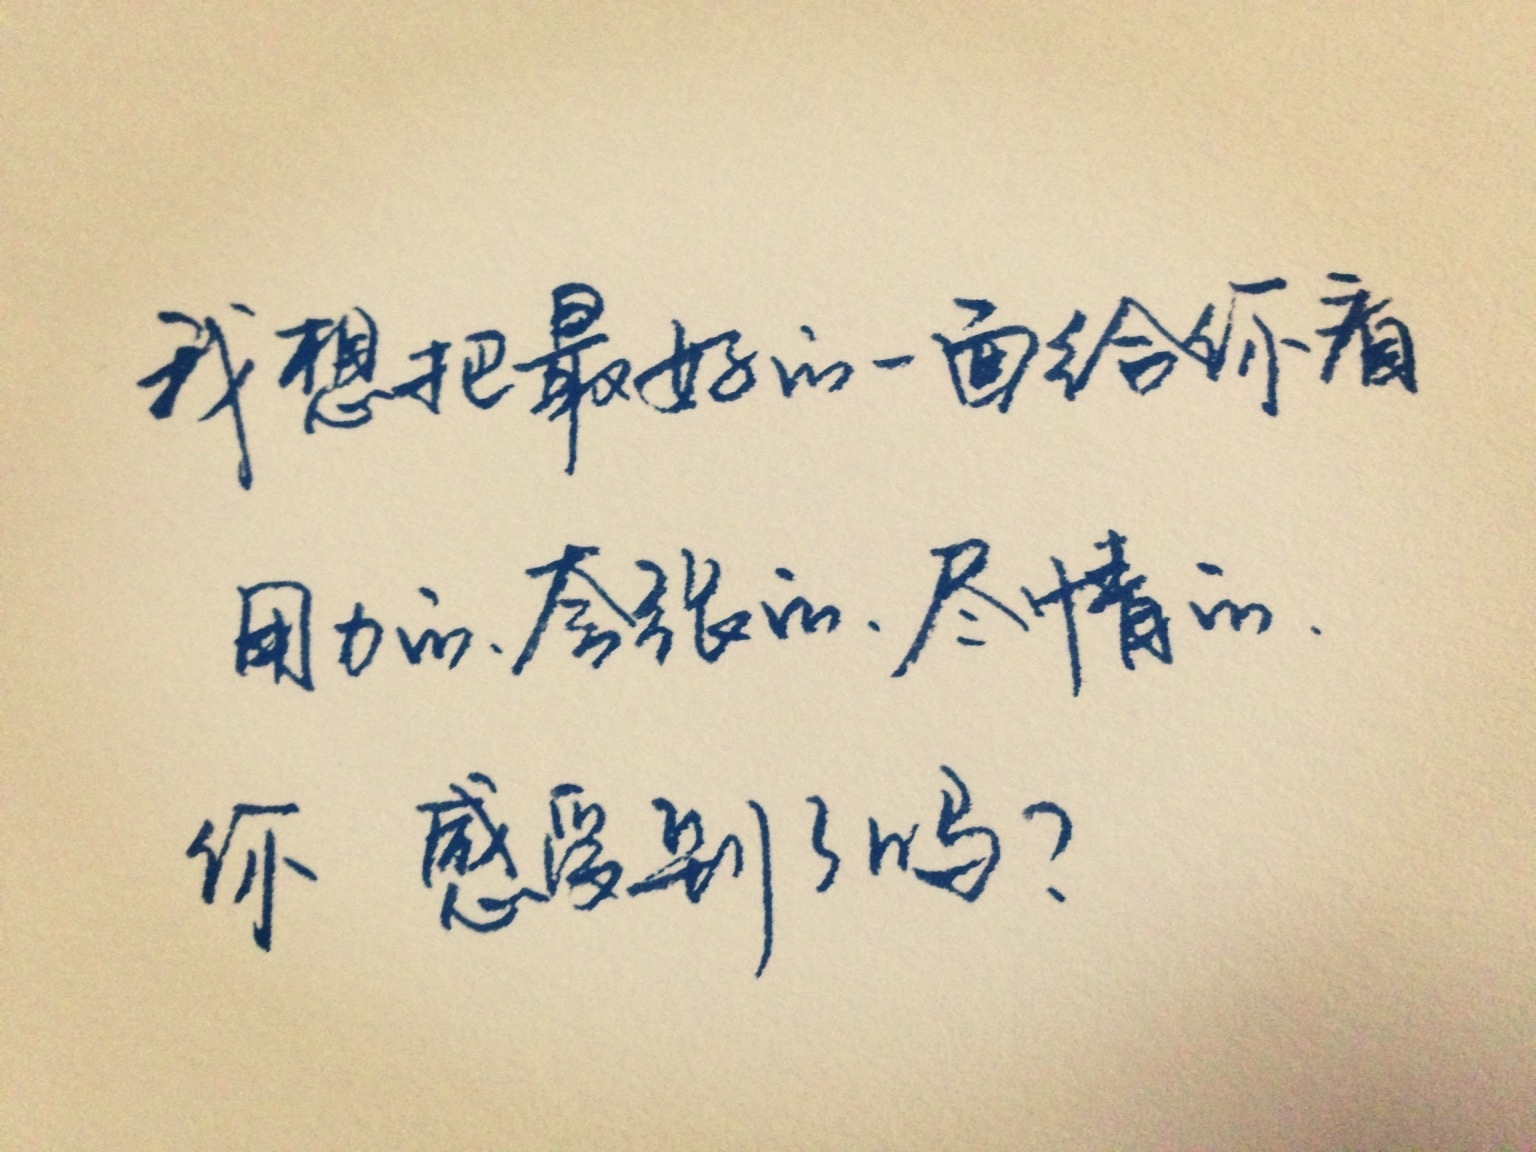 我想把最好的一面给你看
用力的、夸张的、尽情的.
你 感受到了吗?